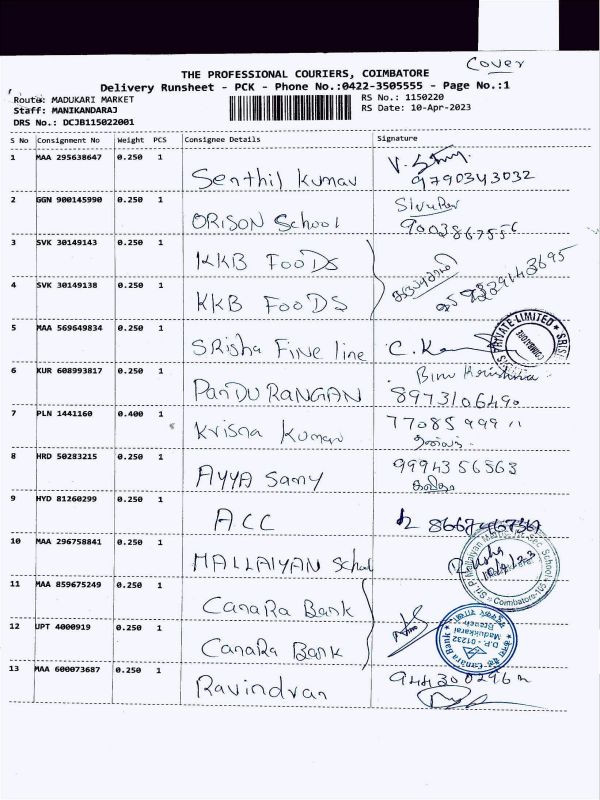 Cover
THE PROFESSIONAL COURIERS, COIMBATORE
Delivery Runsheet - PCK - Phone No.:0422-3505555 - Page No.:1
Route: MADUKARI MARKET
RS No.: 1150220
Staff: MANIKANDARAJ
RS Date: 10-Apr-2023
DRS No.: DCJB115022001
S No Consignment No Weight PCS Consignee Details Signature
1 MAA 295638647 0.250 1 Senthil Kumar
9790343032
2 GGN 900145990 0.250 1 ORISON School
3 SVK 30149143 0.250 1 KKB FOODS
4 SVK 30149138 0.250 1 KKB FOODS
5 MAA 569649834 0.250 1 SRisha Fine line C. K
PRIVATE LIMITED
COIMBATORE
6 KUR 608993817 0.250 1 PANDURANGAN
8973106490
7 PLN 1441160 0.400 1 Krisna Kumar
77085 999 11
8 HRD 50283215 0.250 1 AYYA Samy 9994356563
9 HYD 81260299 0.250 1 ACC
10 MAA 296758841 0.250 1 MALLAIYAN School
Coimbatore-105
11 MAA 859675249 0.250 1 CanaRa Bank
12 UPT 4000919 0.250 1 CanaRa Bank
Canara Bank
D.P. - 01232
Madukkarai
Branch
13 MAA 600073687 0.250 1 Ravindran